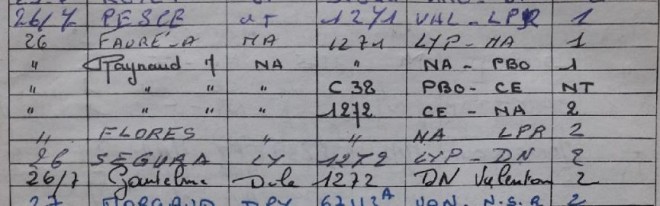 26/7 PESCE NT 1271 VAL-LPR 1
26 FAURE-A NA 1271 LYP-NA 1
" Raynaud 7 NA " NA-PBO 1
" " " " C38 PBO-CE NT
" " " " 1272 CE-NA 2
" FLORES " " NA LPR 2
26 SEGURA LY 1272 LYP-DN 2
26/7 Dole 1272 DN Valenton 2
27 67113A VON. N.S.R 2